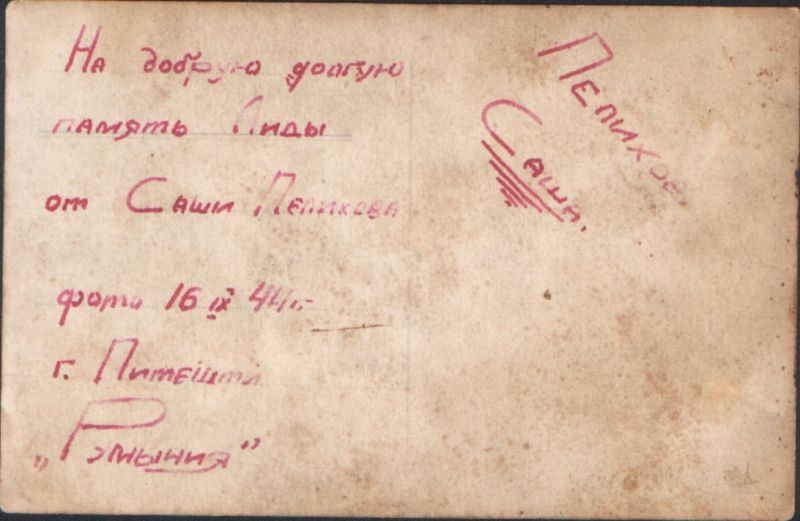 На добрую долгую
память Лиды
от Саши Пелихова
фото 16 IX 44 г.
г. Питешти
„Румыния"
Пелихов
Саша.